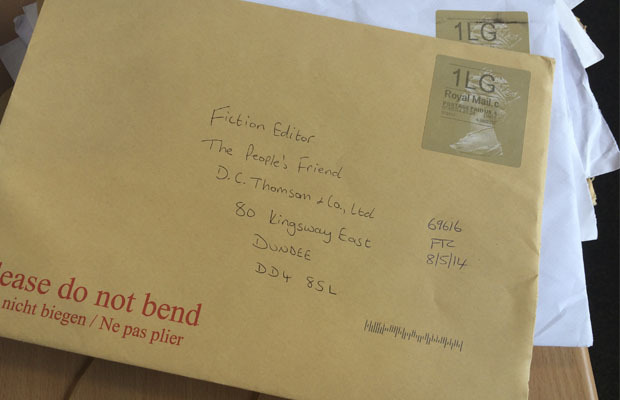 1LG
1LG
Royal Mail
Fiction Editor
The People's Friend
D.C. Thomson & Co., Ltd
80 Kingsway East
DUNDEE
DD4 8SL
69616
FTC
8/5/14
lease do not bend
nicht biegen / Ne pas plier